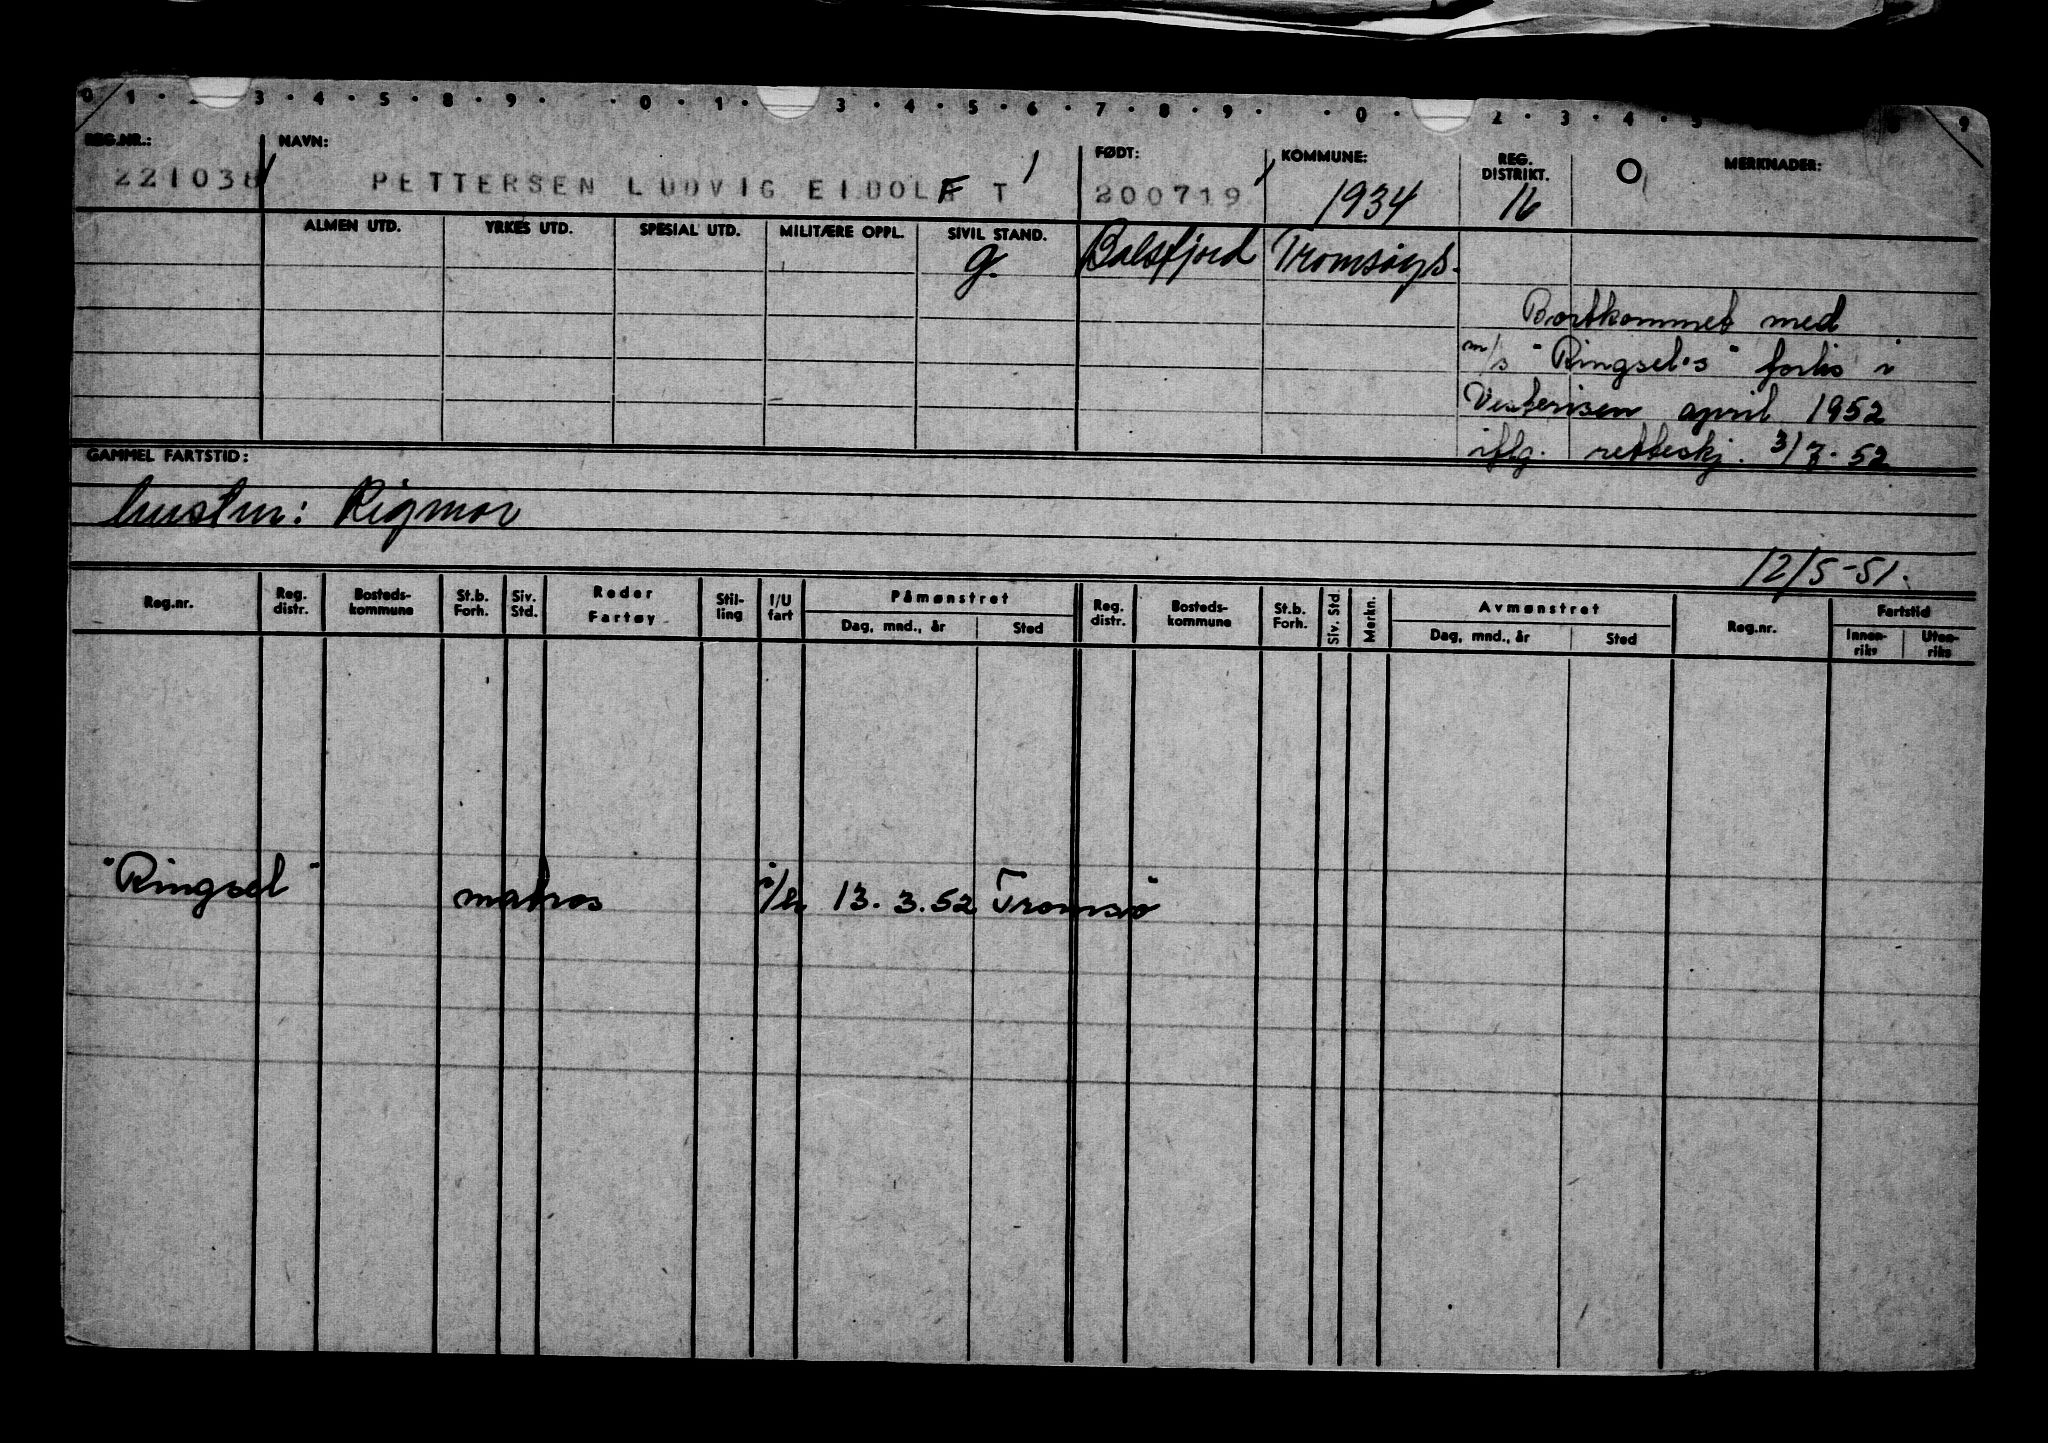 0 1 · · 3 · 4 · 5 · 8 · 9 · · 0 · 1 · 3 · 4 · 5 · 6 · 7 · 8 · 9 · · 0 · 2 · 3 · 4 · 5 8 9
REG.NR.: NAVN: FØDT: KOMMUNE: REG. DISTRIKT. O MERKNADER:
221038 PETTERSEN LUDVIG EIDOLF T 200719 1934 16
ALMEN UTD. YRKES UTD. SPESIAL UTD. MILITÆRE OPPL. SIVIL STAND.
g. Balsfjord Tromsøys.
Bortkommet med
m/s "Ringsel's" forlis i
Vesterisen april 1952
iflg. retteskj. 3/7-52
GAMMEL FARTSTID:
hustru: Rigmor
12/5-51.
Reg.nr. Reg. distr. Bosteds-kommune St.b. Forh. Siv. Std. Reder Fartøy Stil-ling I/U fart Påmønstret Dag, mnd., år Sted Reg. distr. Bosteds-kommune St.b. Forh. Siv. Std. Merkn. Avmønstret Dag, mnd., år Sted Reg.nr. Fartstid Innen-riks Uten-riks
"Ringsel" matros 13.3.52 Tromsø